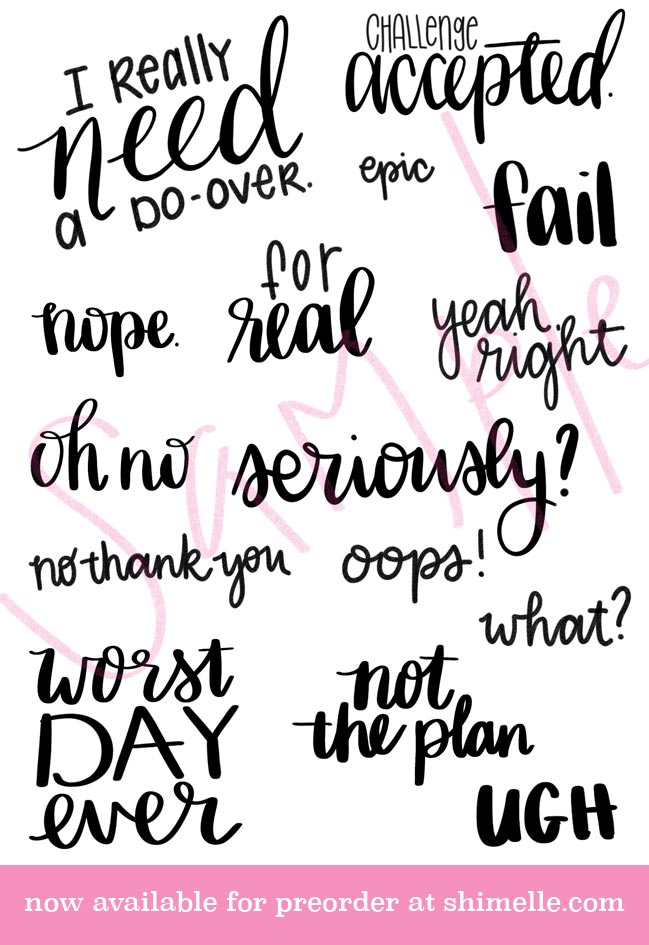 I Really
need
a DO-OVER.
CHALLENGE
accepted.
epic
fail
nope.
for
real
yeah
right
oh no
seriously?
no thank you
oops!
what?
worst
DAY
ever
not
the plan
UGH
Sample
now available for preorder at shimelle.com